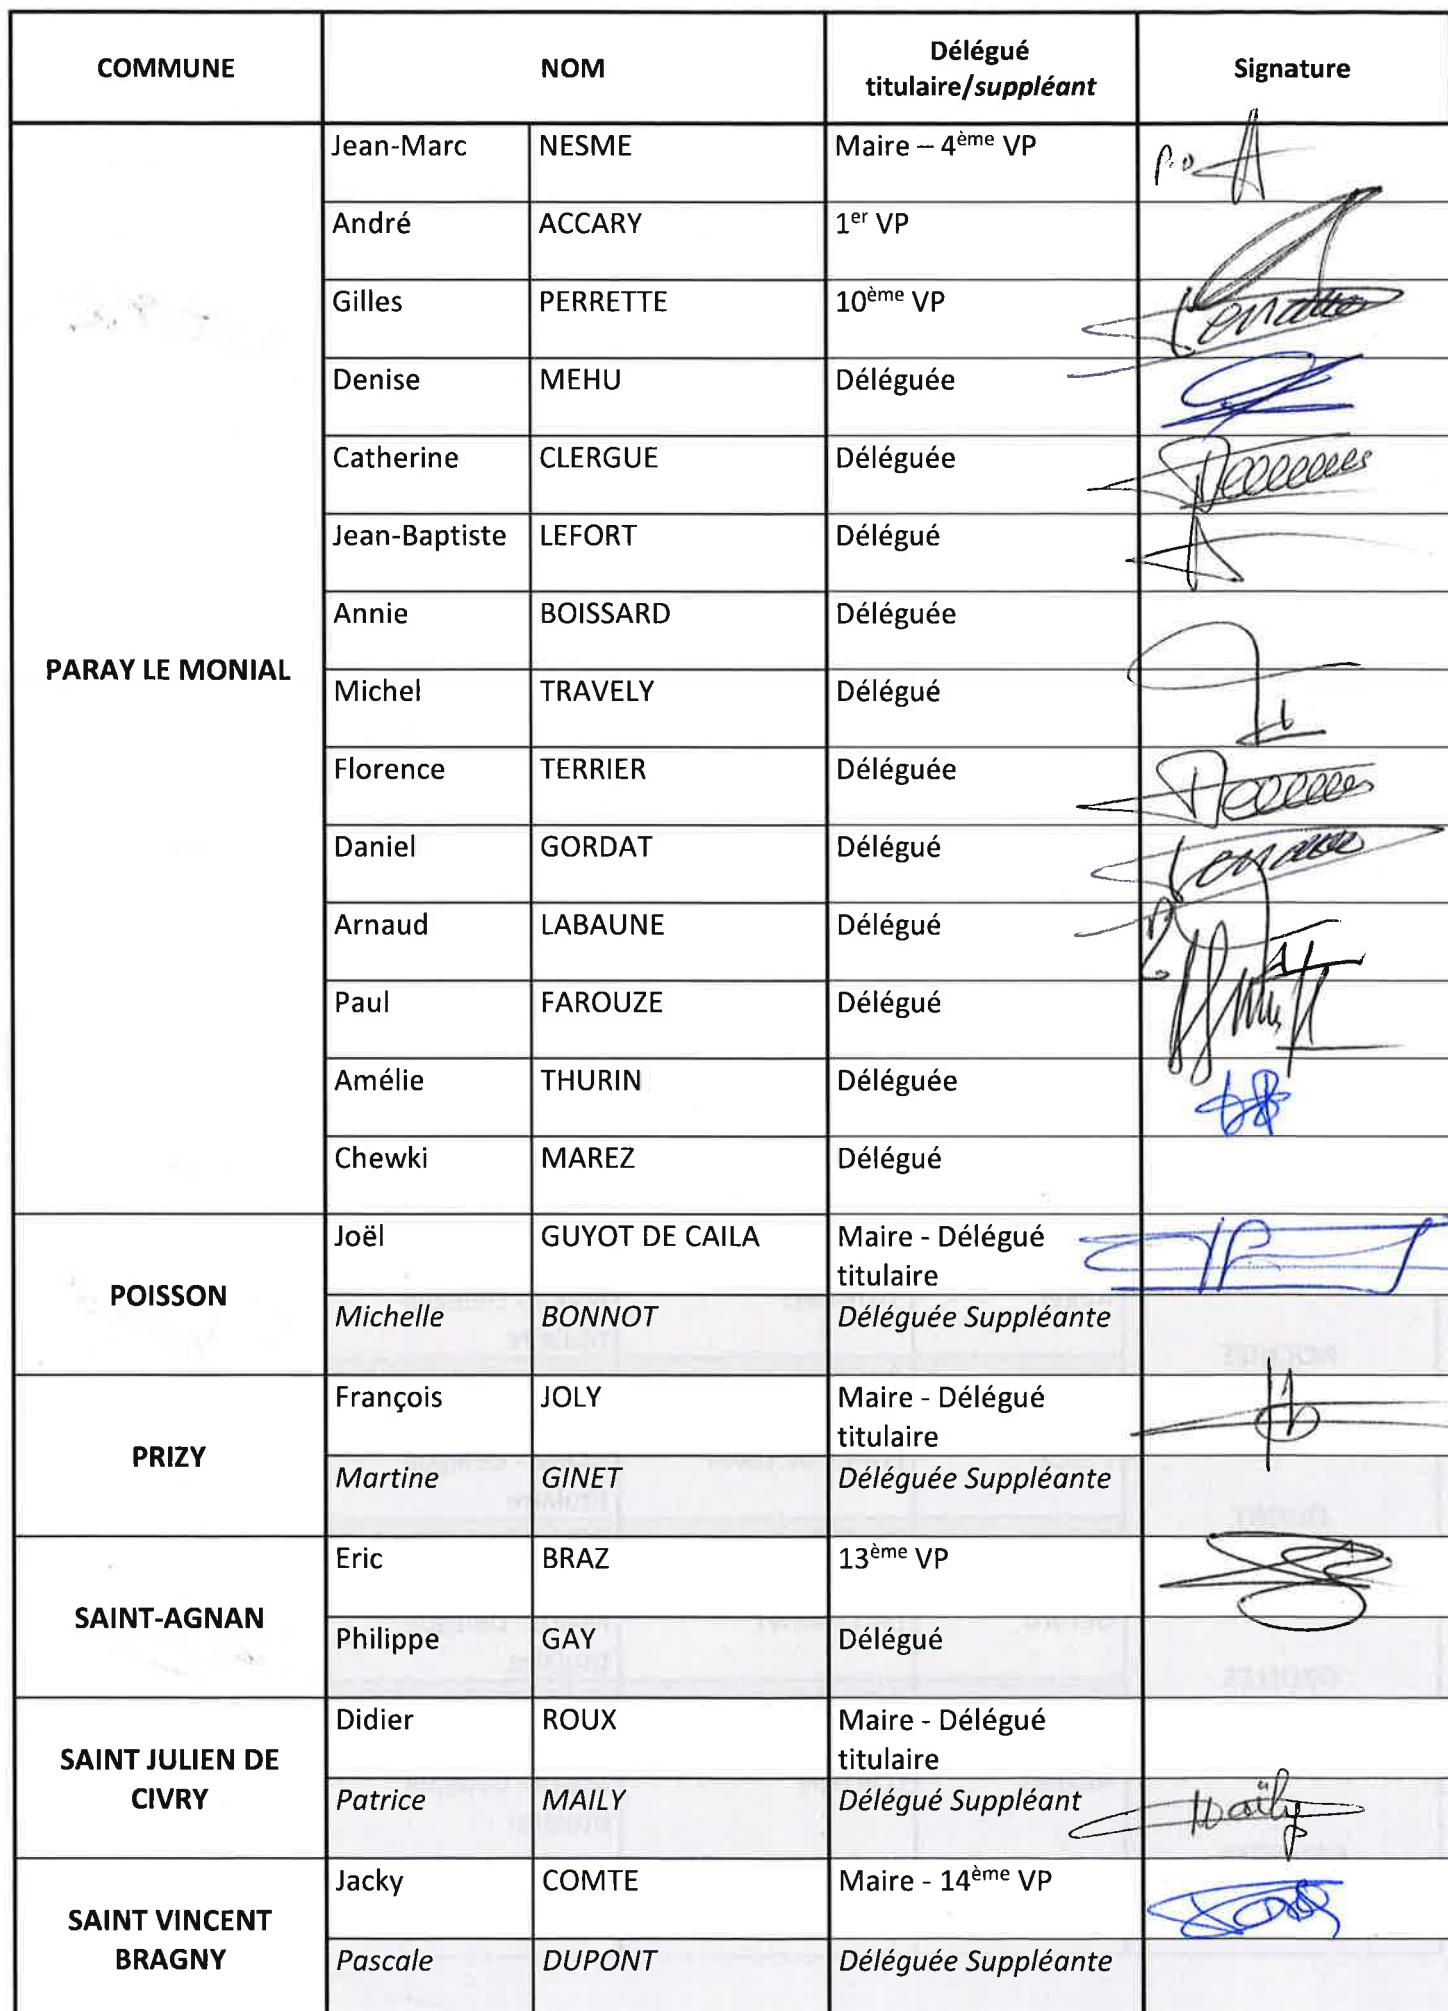 COMMUNE NOM Délégué titulaire/suppléant Signature
PARAY LE MONIAL
Jean-Marc NESME Maire – 4ème VP p.o
André ACCARY 1er VP
Gilles PERRETTE 10ème VP
Denise MEHU Déléguée
Catherine CLERGUE Déléguée
Jean-Baptiste LEFORT Délégué
Annie BOISSARD Déléguée
Michel TRAVELY Délégué
Florence TERRIER Déléguée
Daniel GORDAT Délégué
Arnaud LABAUNE Délégué
Paul FAROUZE Délégué
Amélie THURIN Déléguée
Chewki MAREZ Délégué
POISSON
Joël GUYOT DE CAILA Maire - Délégué titulaire
Michelle BONNOT Déléguée Suppléante
PRIZY
François JOLY Maire - Délégué titulaire
Martine GINET Déléguée Suppléante
SAINT-AGNAN
Eric BRAZ 13ème VP
Philippe GAY Délégué
SAINT JULIEN DE CIVRY
Didier ROUX Maire - Délégué titulaire
Patrice MAILY Délégué Suppléant Maïly
SAINT VINCENT BRAGNY
Jacky COMTE Maire - 14ème VP
Pascale DUPONT Déléguée Suppléante